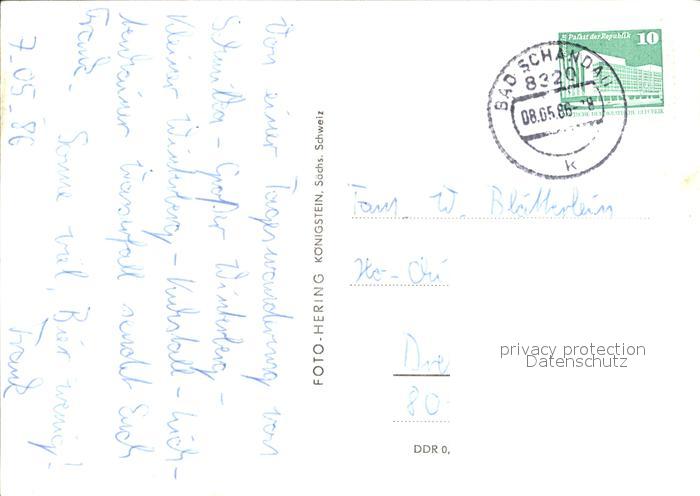 Von einer Tageswanderung von
Schmilka - Großer Winterberg -
Kleiner Winterberg - Kuhstall - Lich-
tenhainer Wasserfall sendet Euch
Frank. Sonne viel, Bier wenig!
Frank
7.05.86
FOTO-HERING KÖNIGSTEIN, Sächs. Schweiz
Palast der Republik 10
BAD SCHANDAU
8320
08.05.86-18
k
Fam. W. Blätterlein
Ho-
80-
DDR 0,
privacy protection
Datenschutz